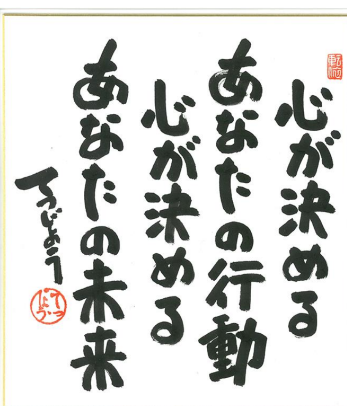 心が決める
あなたの行動
心が決める
あなたの未来
てつじょう
てつじょう